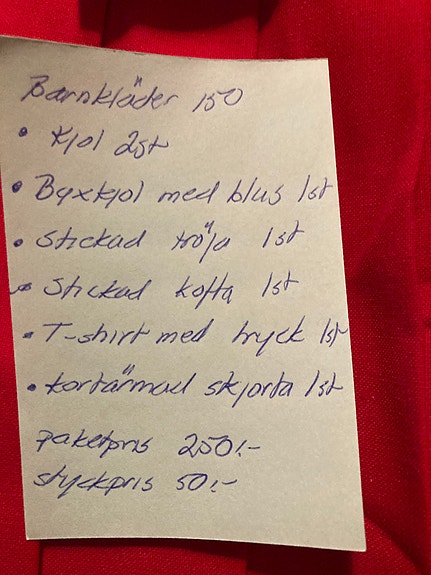 Barnkläder 150
• Kjol 2st
• Byxkjol med blus 1st
• Stickad tröja 1st
• Stickad kofta 1st
• T-shirt med tryck 1st
• Kortärmad skjorta 1st
paketpris 250:-
styckpris 50:-